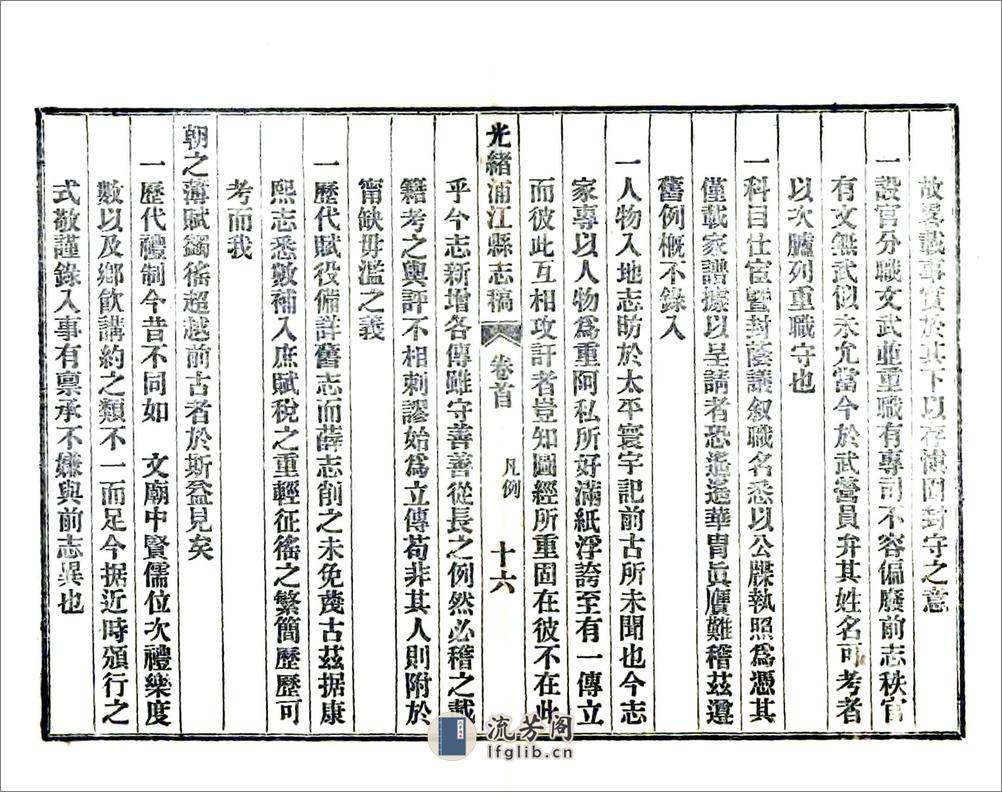 故畧載事實於其下以存愼固封守之意
一設官分職文武並重職有專司不容偏廢前志秩官
有文無武似未允當今於武營員弁其姓名可考者
以次臚列重職守也
一科目仕宦暨封蔭議叙職名悉以公牒執照爲憑其
僅載家譜據以呈請者恐遙遙華胄眞贋難稽茲遵
舊例槪不錄入
一人物入地志昉於太平寰宇記前古所未聞也今志
家專以人物爲重阿私所好滿紙浮誇至有一傳立
而彼此互相攻訐者豈知圖經所重固在彼不在此
光緒浦江縣志稿 卷首 凡例 十六
乎今志新增各傳雖守善善從長之例然必稽之載
籍考之輿評不相刺謬始爲立傳苟非其人則附於
甯缺毋濫之義
一歷代賦役備詳舊志而薛志削之未免蔑古茲据康
熙志悉數補入庶賦稅之重輕征徭之繁簡歷歷可
考而我
朝之薄賦蠲徭超越前古者於斯益見矣
一歷代禮制今昔不同如 文廟中賢儒位次禮樂度
數以及鄉飮講約之類不一而足今据近時頒行之
式敬謹錄入事有禀承不嫌與前志異也
流芳阁
lfglib.cn